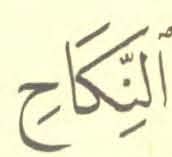 ٱلنِّكَاحِ